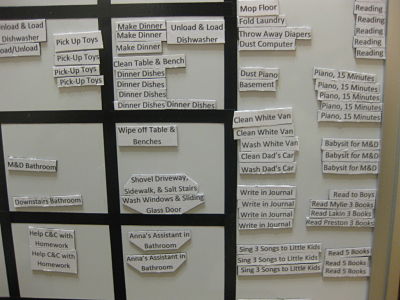 Unload & Load
Dishwasher
Load/Unload
Pick Up Toys
Pick-Up Toys
Pick-Up Toys
Pick-Up Toys
Make Dinner
Make Dinner
Make Dinner
Unload & Load
Dishwasher
Clean Table & Bench
Dinner Dishes
Dinner Dishes
Dinner Dishes
Dinner Dishes
Dinner Dishes
Mop Floor
Fold Laundry
Throw Away Diapers
Dust Computer
Reading
Reading
Reading
Reading
Reading
Dust Piano
Basement
Piano, 15 Minutes
Piano, 15 Minutes
Piano, 15 Minutes
Piano, 15 Minutes
Piano, 15 Minutes
M&D Bathroom
Downstairs Bathroom
Wipe off Table &
Benches
Shovel Driveway,
Sidewalk, & Salt Stairs
Wash Windows & Sliding
Glass Door
Clean White Van
Clean White Van
Wash White Van
Clean Dad's Car
Wash Dad's Car
Babysit for M&D
Babysit for M&D
Babysit for M&D
Write in Journal
Write in Journal
Write in Journal
Write in Journal
Read to Boys
Read Mylie 3 Books
Read Lakin 3 Books
Read Preston 3 Books
Help C&C with
Homework
Help C&C with
Homework
Anna's Assistant in
Bathroom
Anna's Assistant in
Bathroom
Sing 3 Songs to Little Kids
Sing 3 Songs to Little Kids
Sing 3 Songs to Little Kids
Read 5 Books
Read 5 Books
Read 5 Books